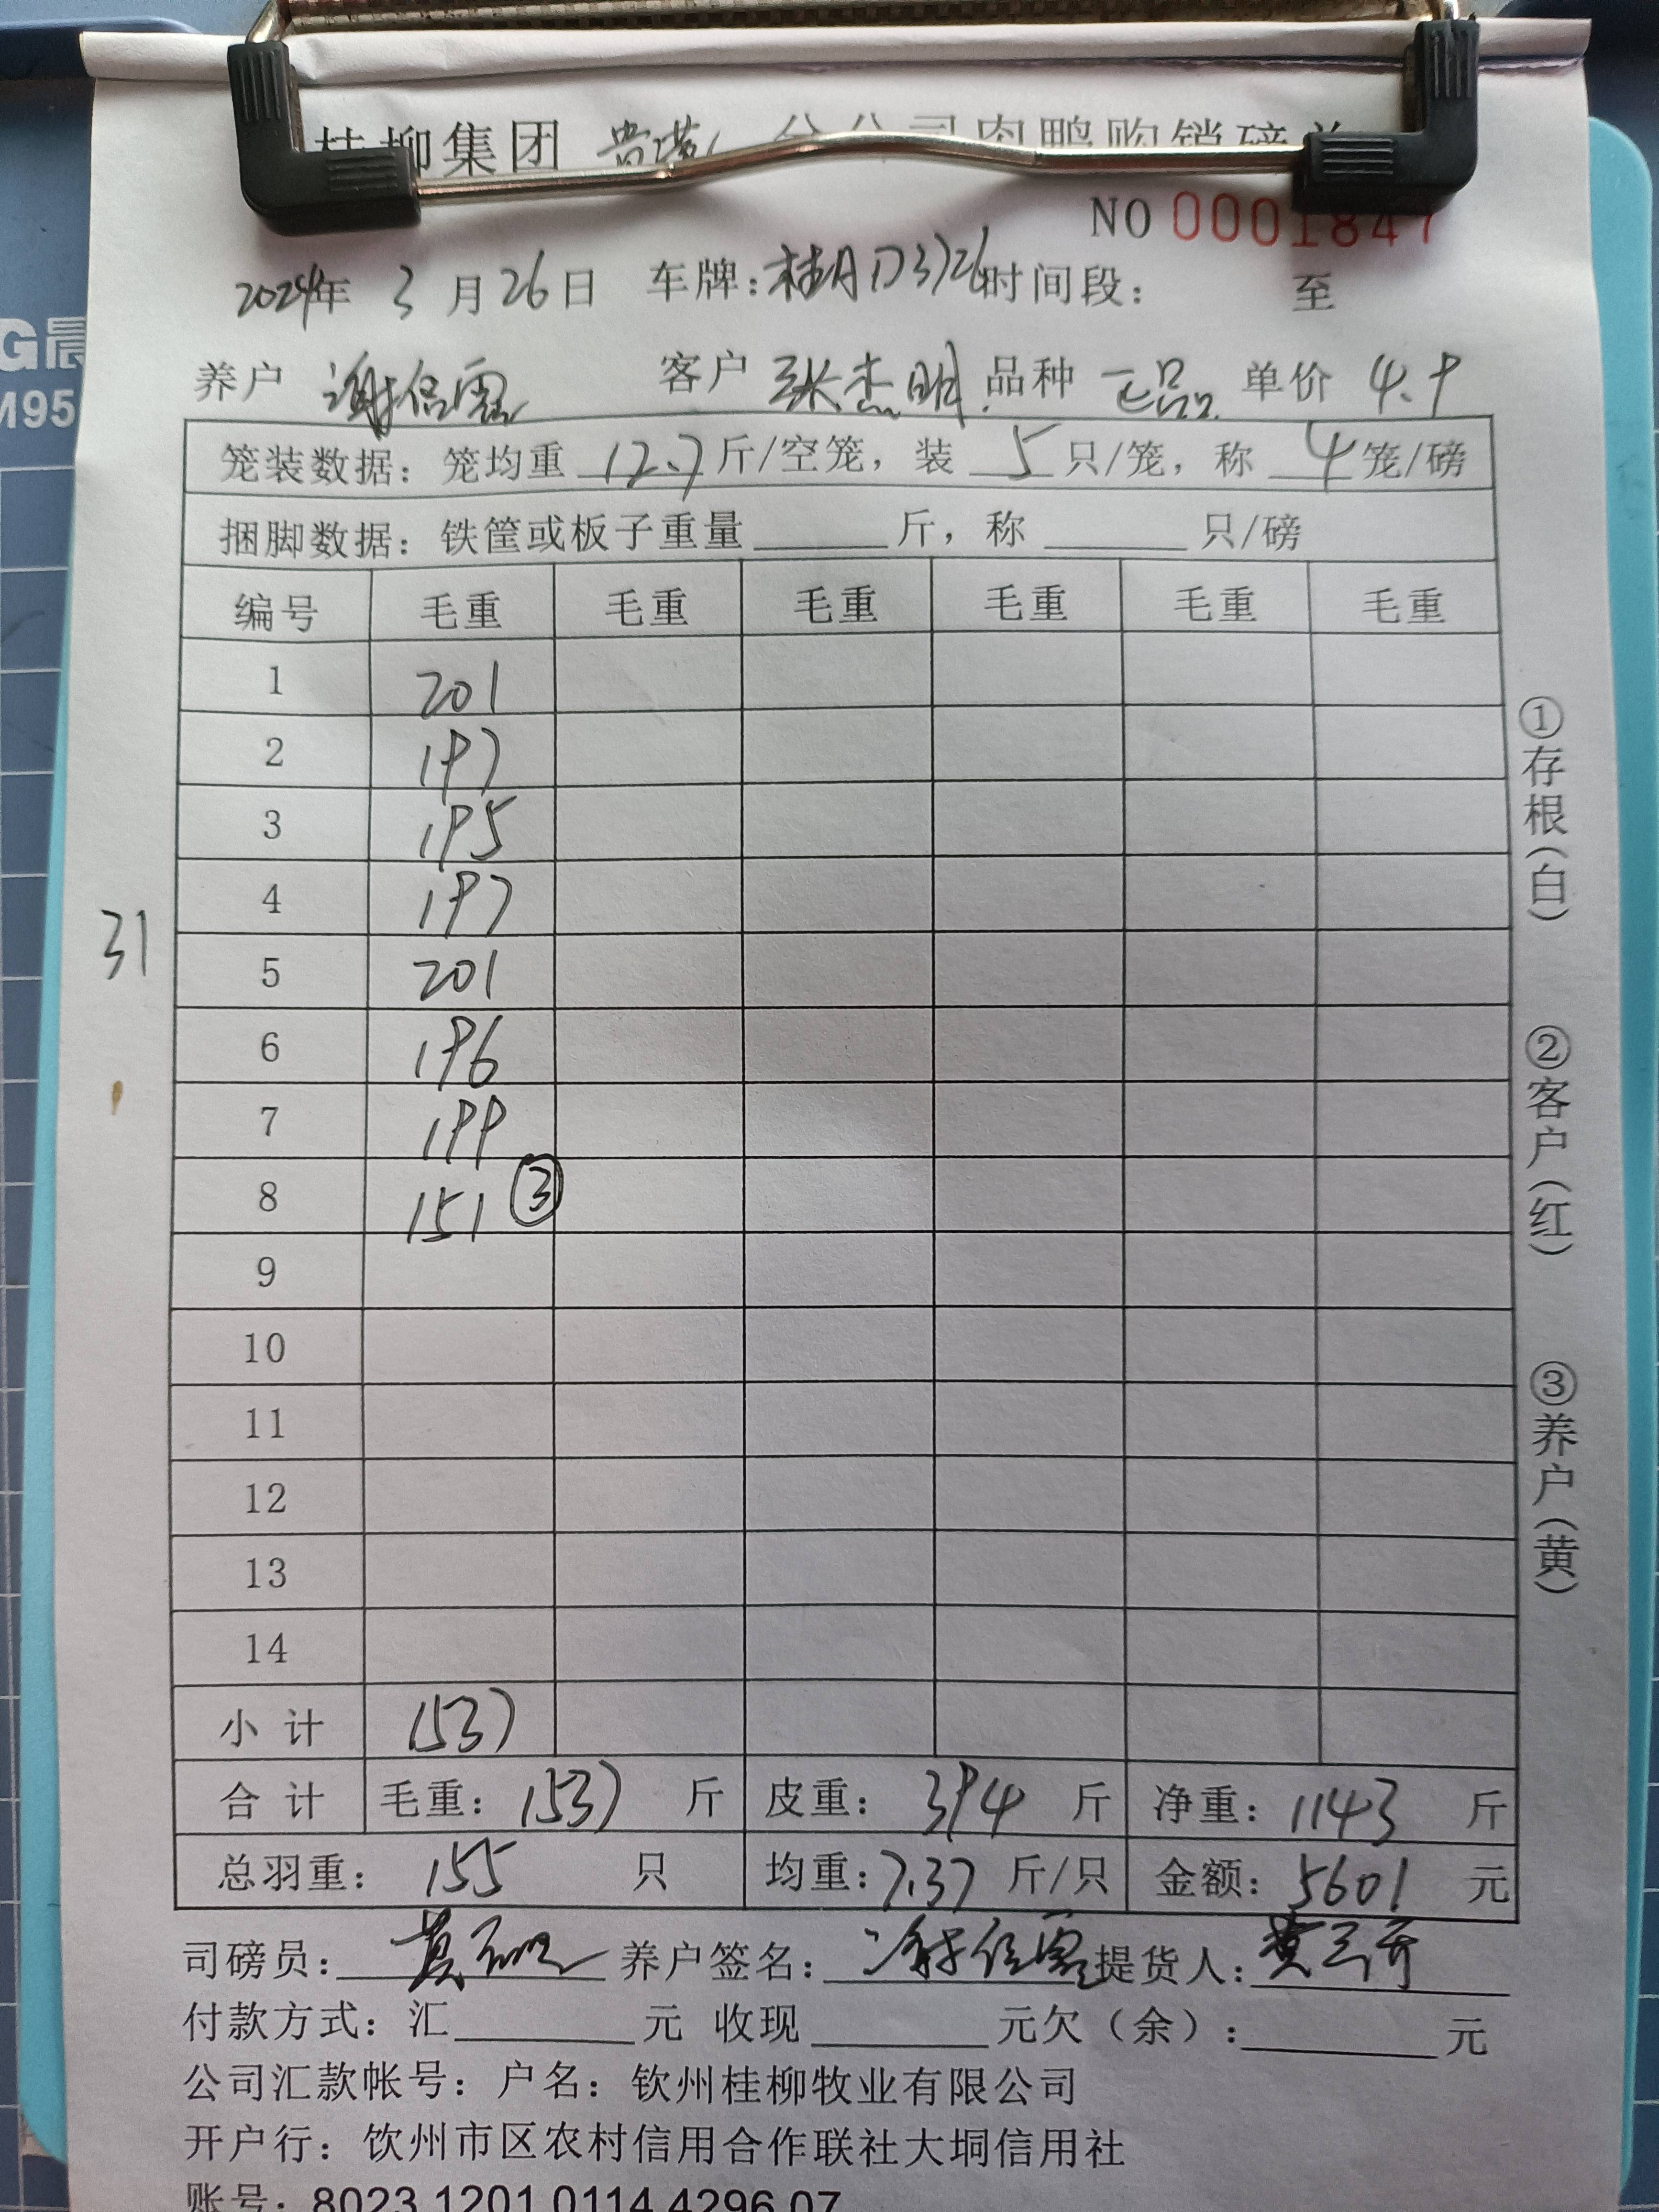 桂柳集团 分公司肉鸭购销磅单
NO 0001847
2024年 3 月 26 日 车牌: 时间段: 至
养户 谢信 客户 张杰明 品种 一品 单价 4.9
笼装数据: 笼均重 12.7 斤/空笼, 装 5 只/笼, 称 4 笼/磅
捆脚数据: 铁筐或板子重量 斤, 称 只/磅
编号 毛重 毛重 毛重 毛重 毛重 毛重
1 201
2 197
3 195
4 197
5 201
6 196
7 199
8 151 ③
9
10
11
12
13
14
小计 1537
合计 毛重: 1537 斤 皮重: 394 斤 净重: 1143 斤
总羽重: 155 只 均重: 7.37 斤/只 金额: 5601 元
司磅员: 养户签名: 提货人:
付款方式: 汇 元 收现 元欠(余): 元
公司汇款帐号: 户名: 钦州桂柳牧业有限公司
开户行: 钦州市区农村信用合作联社大垌信用社
账号: 8023 1201 0114 4296 07
31
①存根(白)
②客户(红)
③养户(黄)
G晨
M95